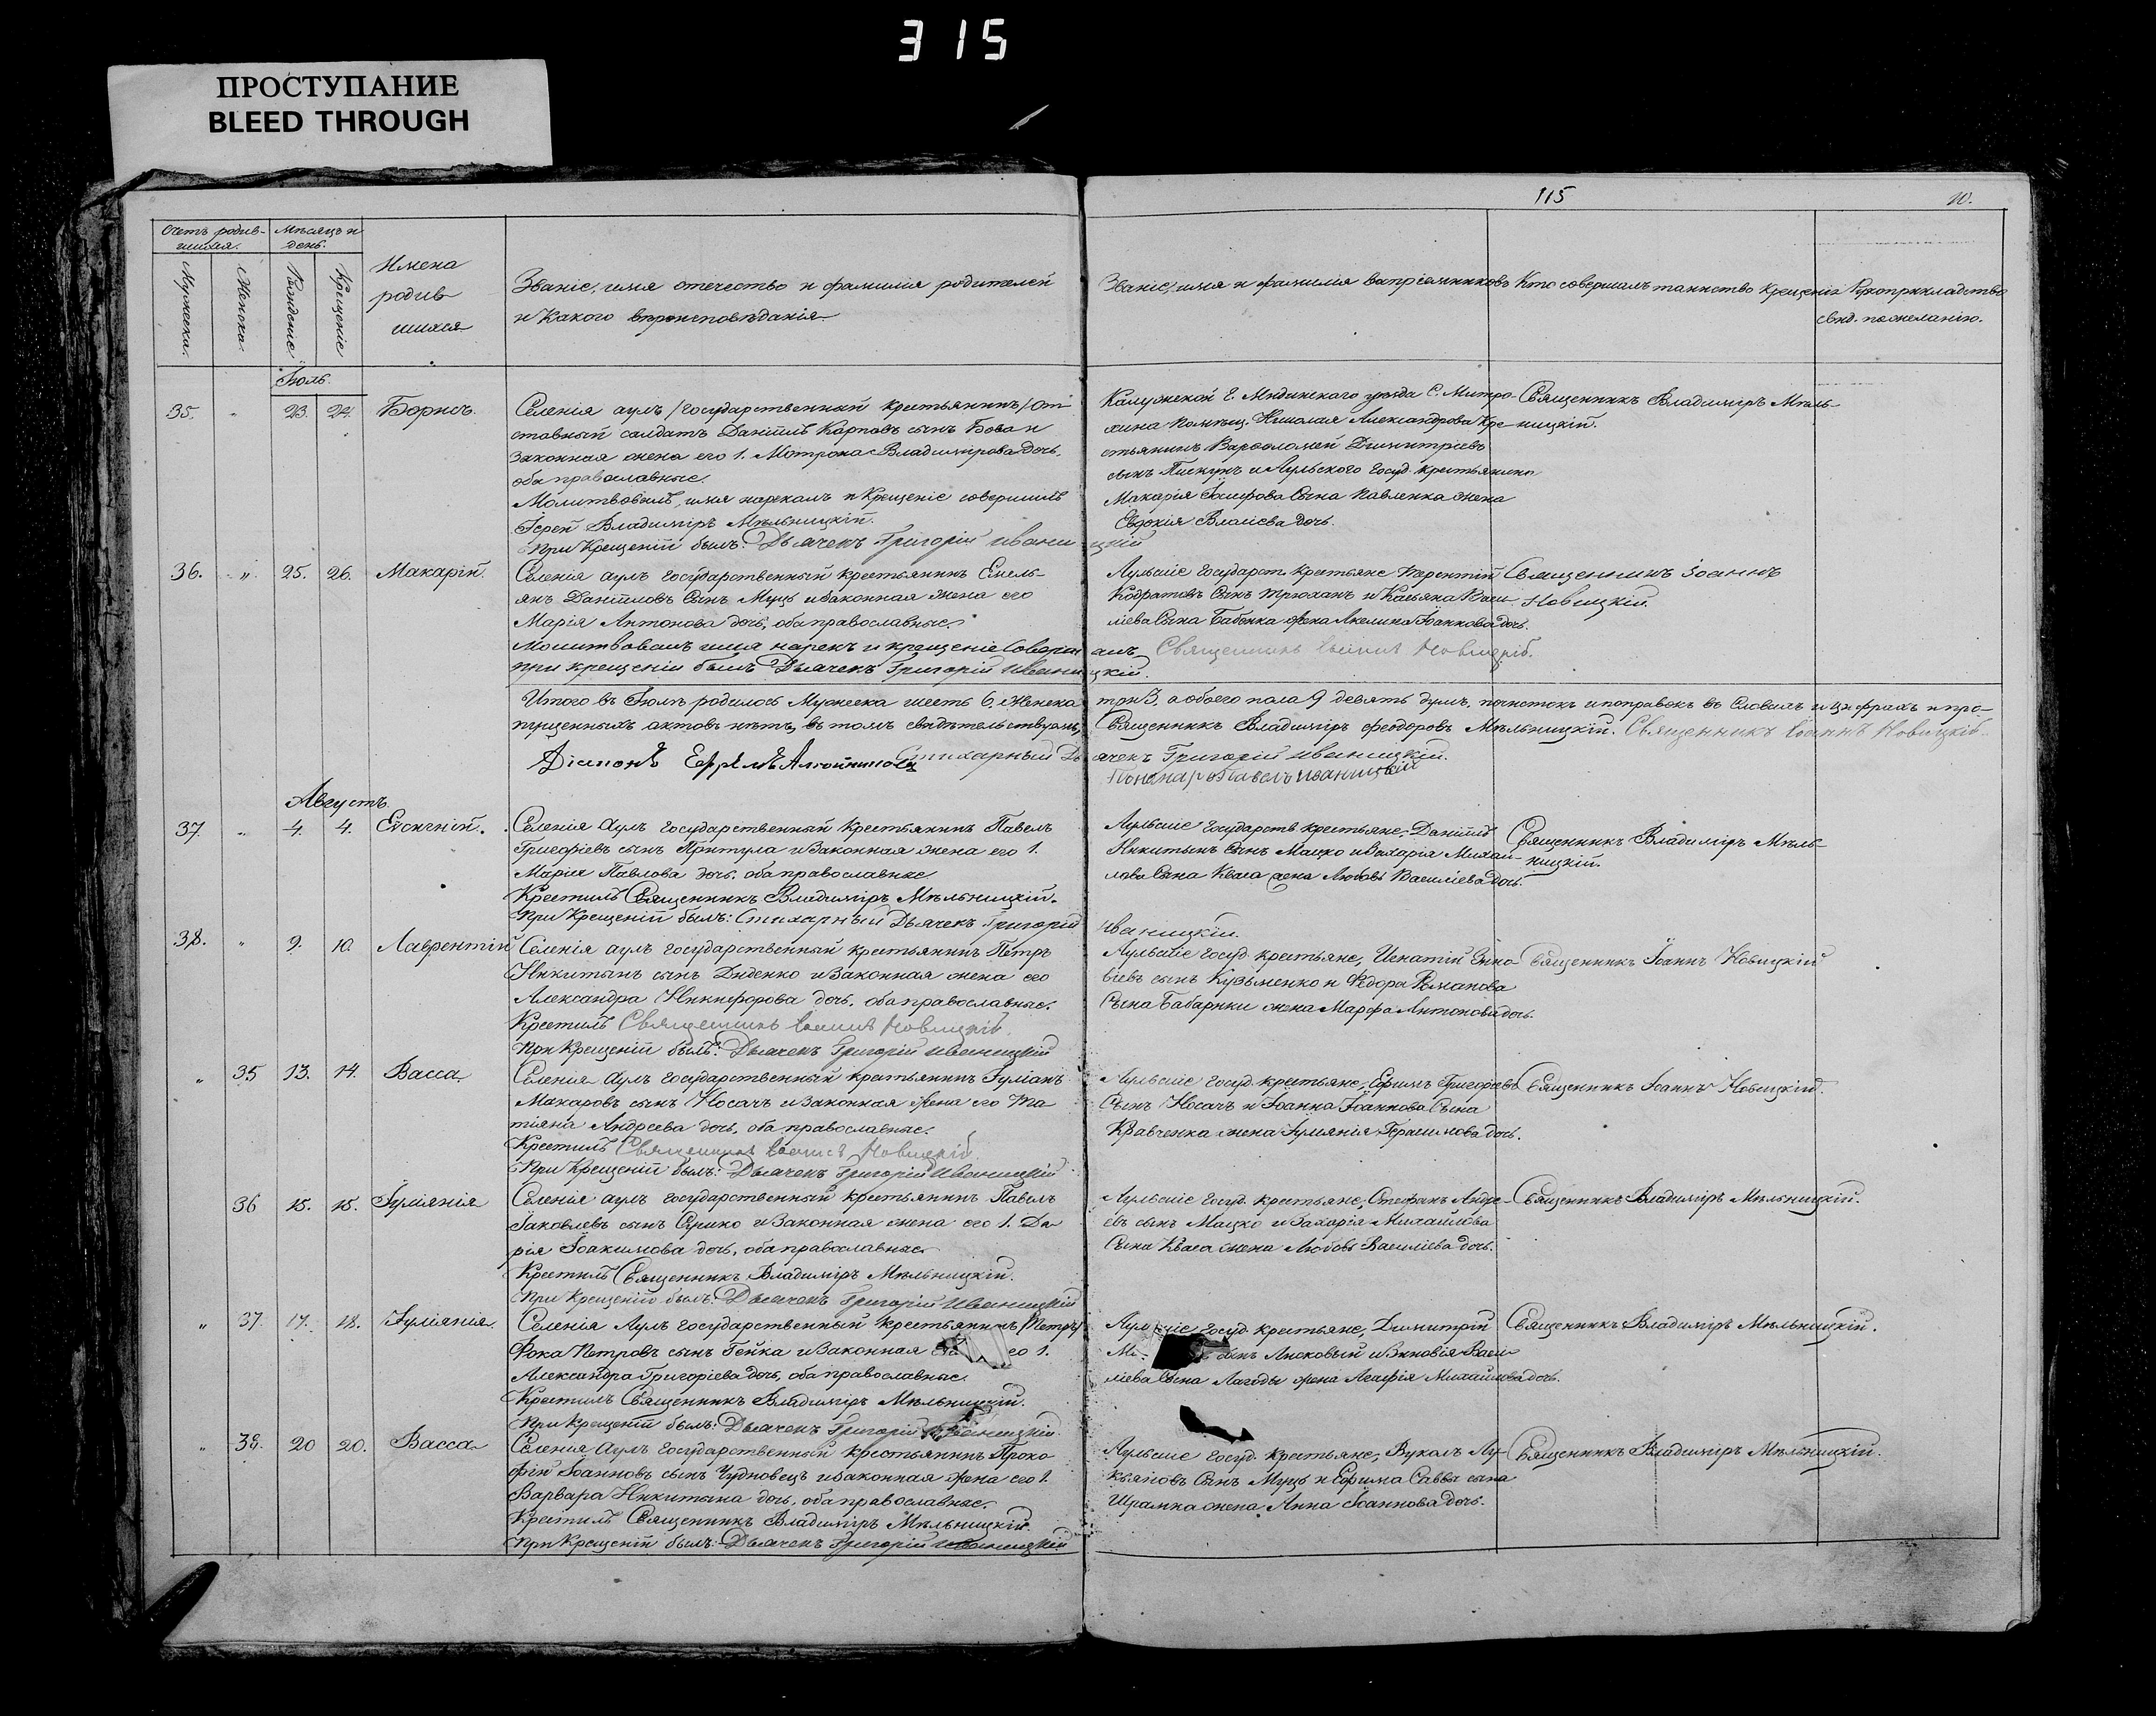 315
ПРОСТУПАНИЕ
BLEED THROUGH
115
10.
Счетъ родив-
шихся.
Мѣсяцъ и
день.
Мужеска.
Женска.
Рожденіе
Крещеніе
Имена
родив
шихся
Званіе, имя отечество и фамилія родителей
и Какого вѣроисповѣданія.
Званіе, имя и фамилія воспріемниковъ
Кто совершалъ таинство Крещенія
Рукоприкладство
свид. по желанію.
Іюль.
35. " 23. 24. Борисъ.
Селенія аулъ /государственный крестьянинъ/ от-
ставный солдатъ Даніилъ Карповъ сынъ и
законная жена его 1. Мотрона Владимірова дочь.
оба православные.
Молитвовалъ, имя нарекалъ и Крещеніе совершилъ
Іерей Владиміръ Мѣльницкій.
При Крещеніи былъ: Дьячекъ Григорій Иваницкій
Калужской Г. Мядинскаго уѣзда С. Митро-
хина Помѣщ. Николая Александрова Кре-
стьянинъ Варфоломей Димитріевъ
сынъ Пискунъ и Аульского Госуд. крестьянина
Макарія Іосифова Сына Павленка жена
Евдокія Власіева дочь.
Священникъ Владиміръ Мѣль-
ницкій.
36. " 25. 26. Макарій.
Селенія аулъ государственный крестьянинъ Емель-
янъ Даніиловъ Сынъ Муць и законная жена его
Марія Антонова дочь, оба православные.
Молитвовалъ имя нарекъ и крещеніе соверш алъ Священникъ Іоаннъ Новицкій.
при крещеніи былъ Дьячекъ Григорій Иваницкій.
Аульскіе Государст. Крестьяне Терентій
Кодратовъ Сынъ Трюханъ и Касьяна Васи
ліева Сына Бабенка жена Акелина Іоаннова дочь.
Священникъ Іоаннъ
Новицкій.
Итого въ Іюлѣ родилось Мужеска шесть 6, Женска три 3, а обоего пола 9 девять душъ, почистокъ и поправокъ въ Словахъ и цифрахъ и про-
пущенныхъ актовъ нѣтъ, въ томъ свидѣтельствуемъ, Священникъ Владиміръ Феодоровъ Мѣльницкій. Священникъ Іоаннъ Новицкій.
Діаконъ Ефремъ Стихарный Дьячекъ Григорій Иваницкій.
Понамарь Павелъ Иваницкій
Августъ.
37 " 4. 4. Евсигній.
Селенія Аулъ государственный крестьянинъ Павелъ
Григоріевъ сынъ Притула и Законная жена его 1.
Марія Павлова дочь. оба православные
Крестилъ Священникъ Владиміръ Мѣльницкій.
При Крещеніи былъ: Стихарный Дьячекъ Григорій Иваницкій.
Аульскіе Государств крестьяне, Даніилъ
Никитынъ Сынъ Мацко и Захарія Михай-
лова Сына Кваса жена Любовь Василіева дочь.
Священникъ Владиміръ Мѣль-
ницкій.
38. " 9. 10. Лаврентій
Селенія аулъ государственный крестьянинъ Петръ
Никитынъ сынъ Диденко и Законная жена его
Александра Никифорова дочь. оба православные.
Крестилъ Священникъ Іоаннъ Новицкій.
При Крещеніи былъ: Дьячекъ Григорій Иваницкій
Аульскіе Госуд. крестьяне, Игнатій Зино
віевъ сынъ Кузьменко и Федора Романова
Сына Бабарики жена Марфа Антонова дочь.
Священникъ Іоаннъ Новицкій
" 35 13. 14. Васса
Селенія Аулъ государственный крестьянинъ Іуліанъ
Макаровъ сынъ Носачъ и Законная жена его Та
тіяна Андреева дочь, оба православные.
Крестилъ Священникъ Іоаннъ Новицкій.
При Крещеніи былъ: Дьячекъ Григорій Иваницкій
Аульскіе Госуд. крестьяне, Ефимъ Григоріевъ
Сынъ Носачъ и Іоанна Іоаннова Сына
Кравченка жена Іуліянія Герасимова дочь.
Священникъ Іоаннъ Новицкій.
36 15. 15. Іуліянія
Селенія аулъ государственный крестьянинъ Павелъ
Іаковлевъ сынъ Сірико и Законная жена его 1. Да
рія Іоакимова дочь, оба православные.
Крестилъ Священникъ Владиміръ Мѣльницкій.
При Крещеніи былъ: Дьячекъ Григорій Иваницкій
Аульскіе Госуд. крестьяне, Стефанъ Андре-
евъ сынъ Мацко и Захарія Михайлова
Сына Кваса жена Любовь Василіева дочь.
Священникъ Владиміръ Мѣльницкій.
" 37. 17. 18. Іуліянія.
Селенія Аулъ государственный крестьянинъ /Петръ/
Фока Петровъ сынъ Гейка и Законная его 1.
Александра Григоріева дочь, оба православные.
Крестилъ Священникъ Владиміръ Мѣльницкій.
При Крещеніи былъ: Дьячекъ Григорій Иваницкій.
Аульскіе Госуд. крестьяне, Димитрій
сынъ Лисковый и Зиновія Васи
ліева Сына Лагоды жена Агафія Михайлова дочь.
Священникъ Владиміръ Мѣльницкій.
" 38. 20 20. Васса
Селенія Аулъ государственный крестьянинъ Проко
фій Іоанновъ сынъ Чудновецъ и законная жена его 1.
Варвара Никитына дочь, оба православные.
Крестилъ Священникъ Владиміръ Мѣльницкій.
При Крещеніи былъ: Дьячекъ Григорій Иваницкій
Аульскіе Госуд. крестьяне, Вуколъ Лу-
кьяновъ Сынъ Муць и Ефима Саввы сына
Шрамка жена Анна Іоаннова дочь.
Священникъ Владиміръ Мѣльницкій.